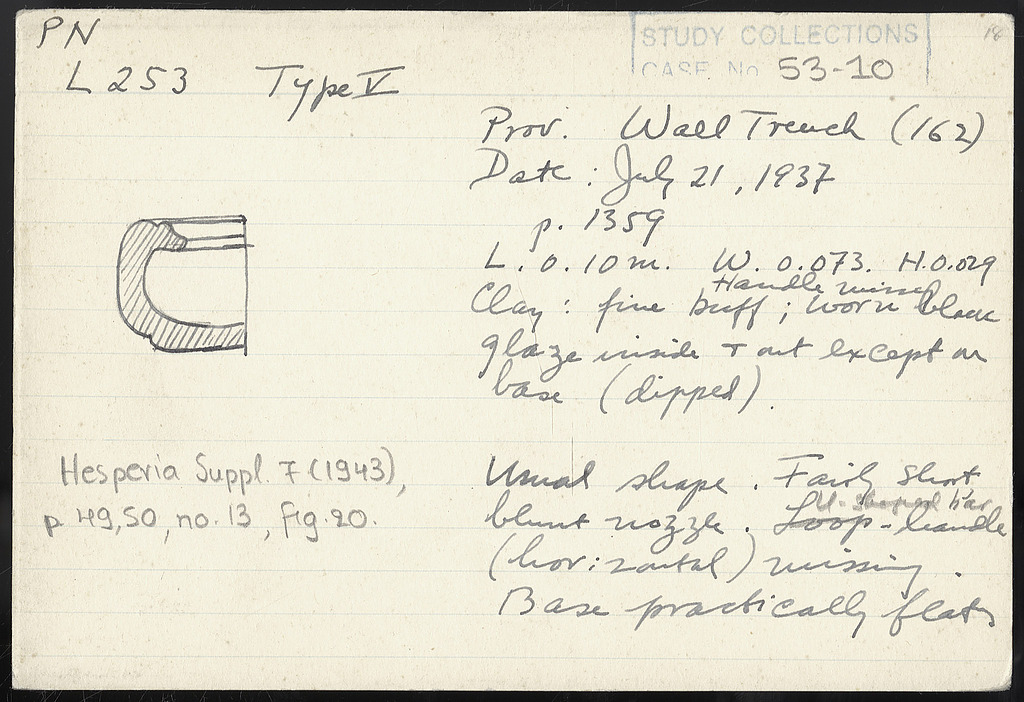 PN
STUDY COLLECTIONS
CASE No 53-10
L 253 Type V
Prov. Wall Trench (162)
Date : July 21, 1937
p. 1359
L. 0.10 m. W. 0.073. H. 0.029
Handle missing
Clay : fine buff ; worn black
glaze inside + out except on
base (dipped).
Hesperia Suppl. 7 (1943),
p. 49,50, no. 13, fig. 20.
Usual shape. Fairly short
U-shaped bar
blunt nozzle. Loop-handle
(horizontal) missing.
Base practically flat